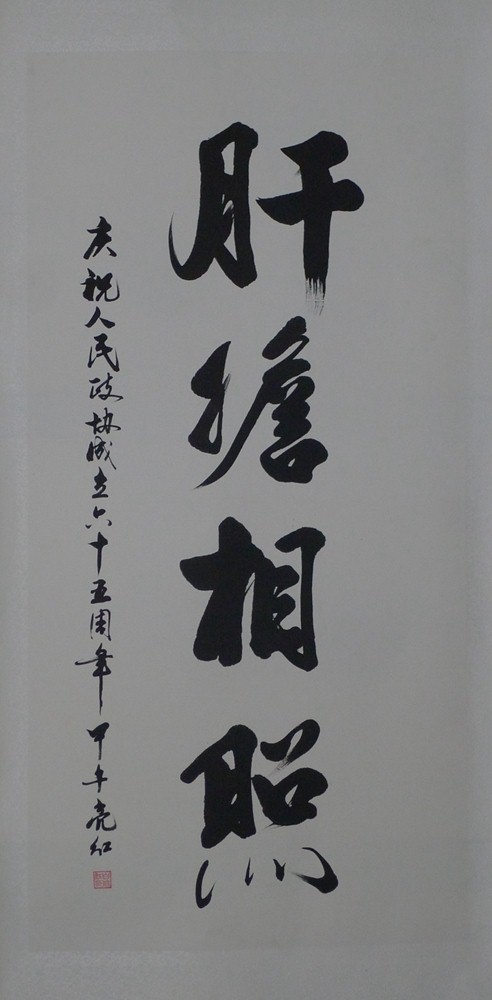 肝擔相照
庆祝人民政协成立六十五周年 甲午亮红